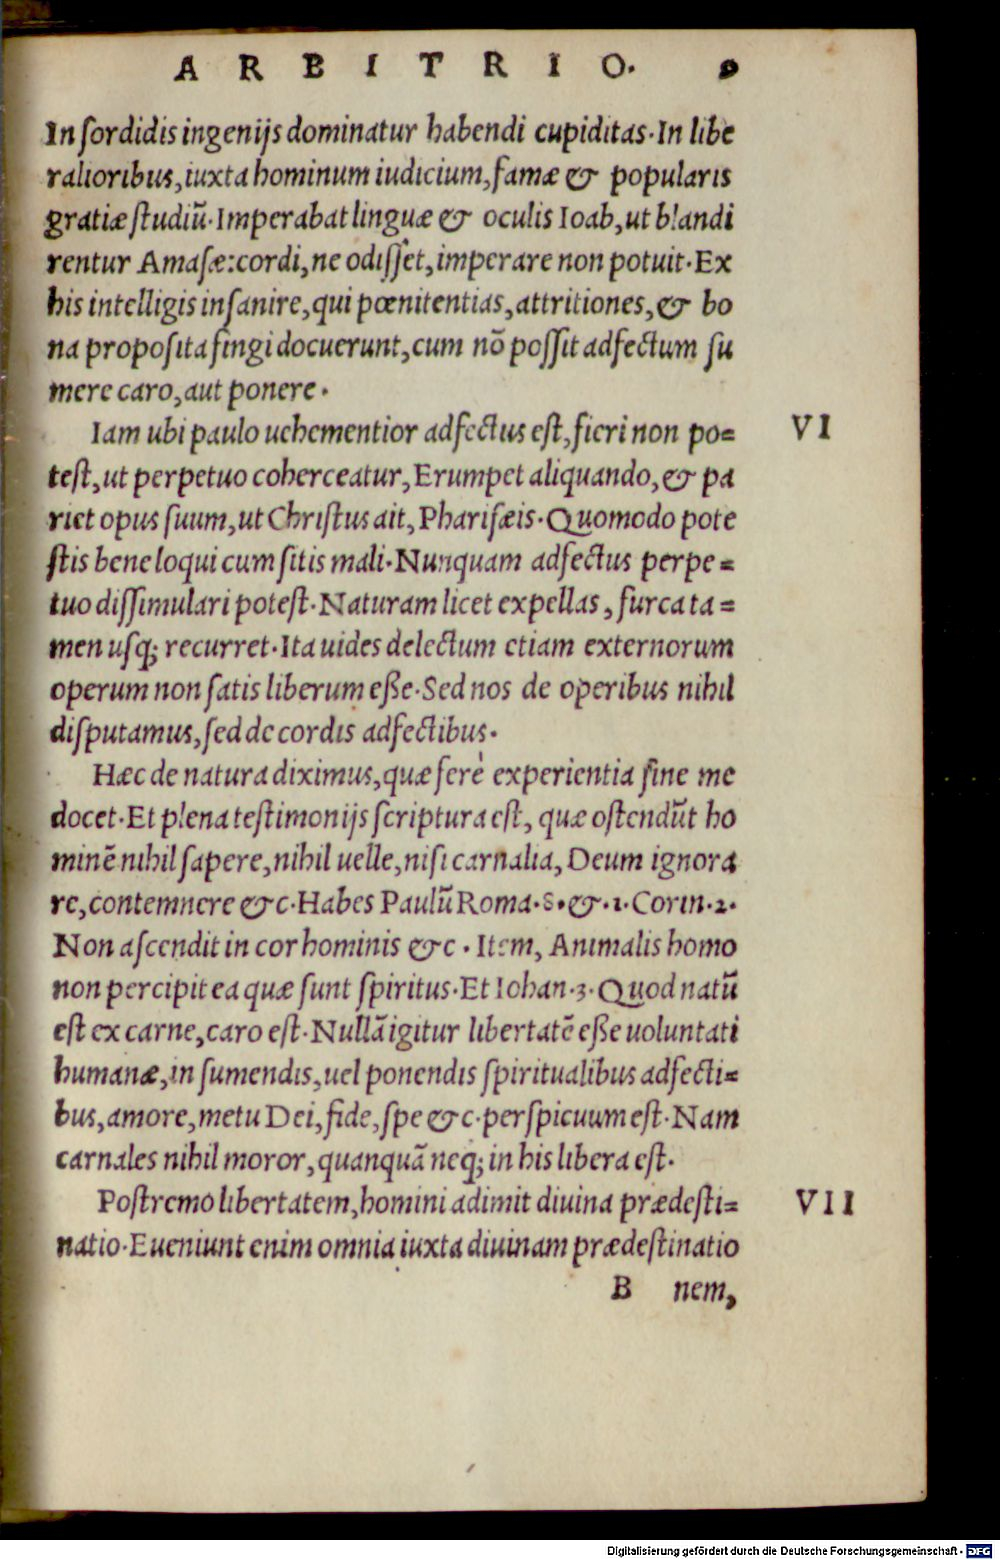 ARBITRIO. 9
In ſordidis ingenijs dominatur habendi cupiditas. In libe
ralioribus, iuxta hominum iudicium, famæ & popularis
gratiæ ſtudiũ. Imperabat linguæ & oculis Ioab, ut blandi
rentur Amaſæ: cordi, ne odiſſet, imperare non potuit. Ex
his intelligis inſanire, qui pœnitentias, attritiones, & bo
na propoſita fingi docuerunt, cum nõ poſſit adfectum ſu
mere caro, aut ponere.
Iam ubi paulo uehementior adfectus eſt, fieri non po= VI
teſt, ut perpetuo coherceatur, Erumpet aliquando, & pa
riet opus ſuum, ut Chriſtus ait, Phariſæis. Quomodo pote
ſtis bene loqui cum ſitis mali. Nunquam adfectus perpe=
tuo diſſimulari poteſt. Naturam licet expellas, furca ta=
men uſq; recurret. Ita uides delectum etiam externorum
operum non ſatis liberum eße. Sed nos de operibus nihil
diſputamus, ſed de cordis adfectibus.
Hæc de natura diximus, quæ ferè experientia ſine me
docet. Et plena teſtimonijs ſcriptura eſt, quæ oſtendũt ho
minẽ nihil ſapere, nihil uelle, niſi carnalia, Deum ignora
re, contemnere &c. Habes Paulũ Roma. 8. &. 1. Corin. 2.
Non aſcendit in cor hominis &c. Item, Animalis homo
non percipit ea quæ ſunt ſpiritus. Et Iohan. 3. Quod natũ
eſt ex carne, caro eſt. Nullã igitur libertatẽ eße uoluntati
humanæ, in ſumendis, uel ponendis ſpiritualibus adfecti=
bus, amore, metu Dei, fide, ſpe &c. perſpicuum eſt. Nam
carnales nihil moror, quanquã neq; in his libera eſt.
Poſtremo libertatem, homini adimit diuina prædeſti= VII
natio. Eueniunt enim omnia iuxta diuinam prædeſtinatio
B nem,
Digitalisierung gefördert durch die Deutsche Forschungsgemeinschaft - DFG